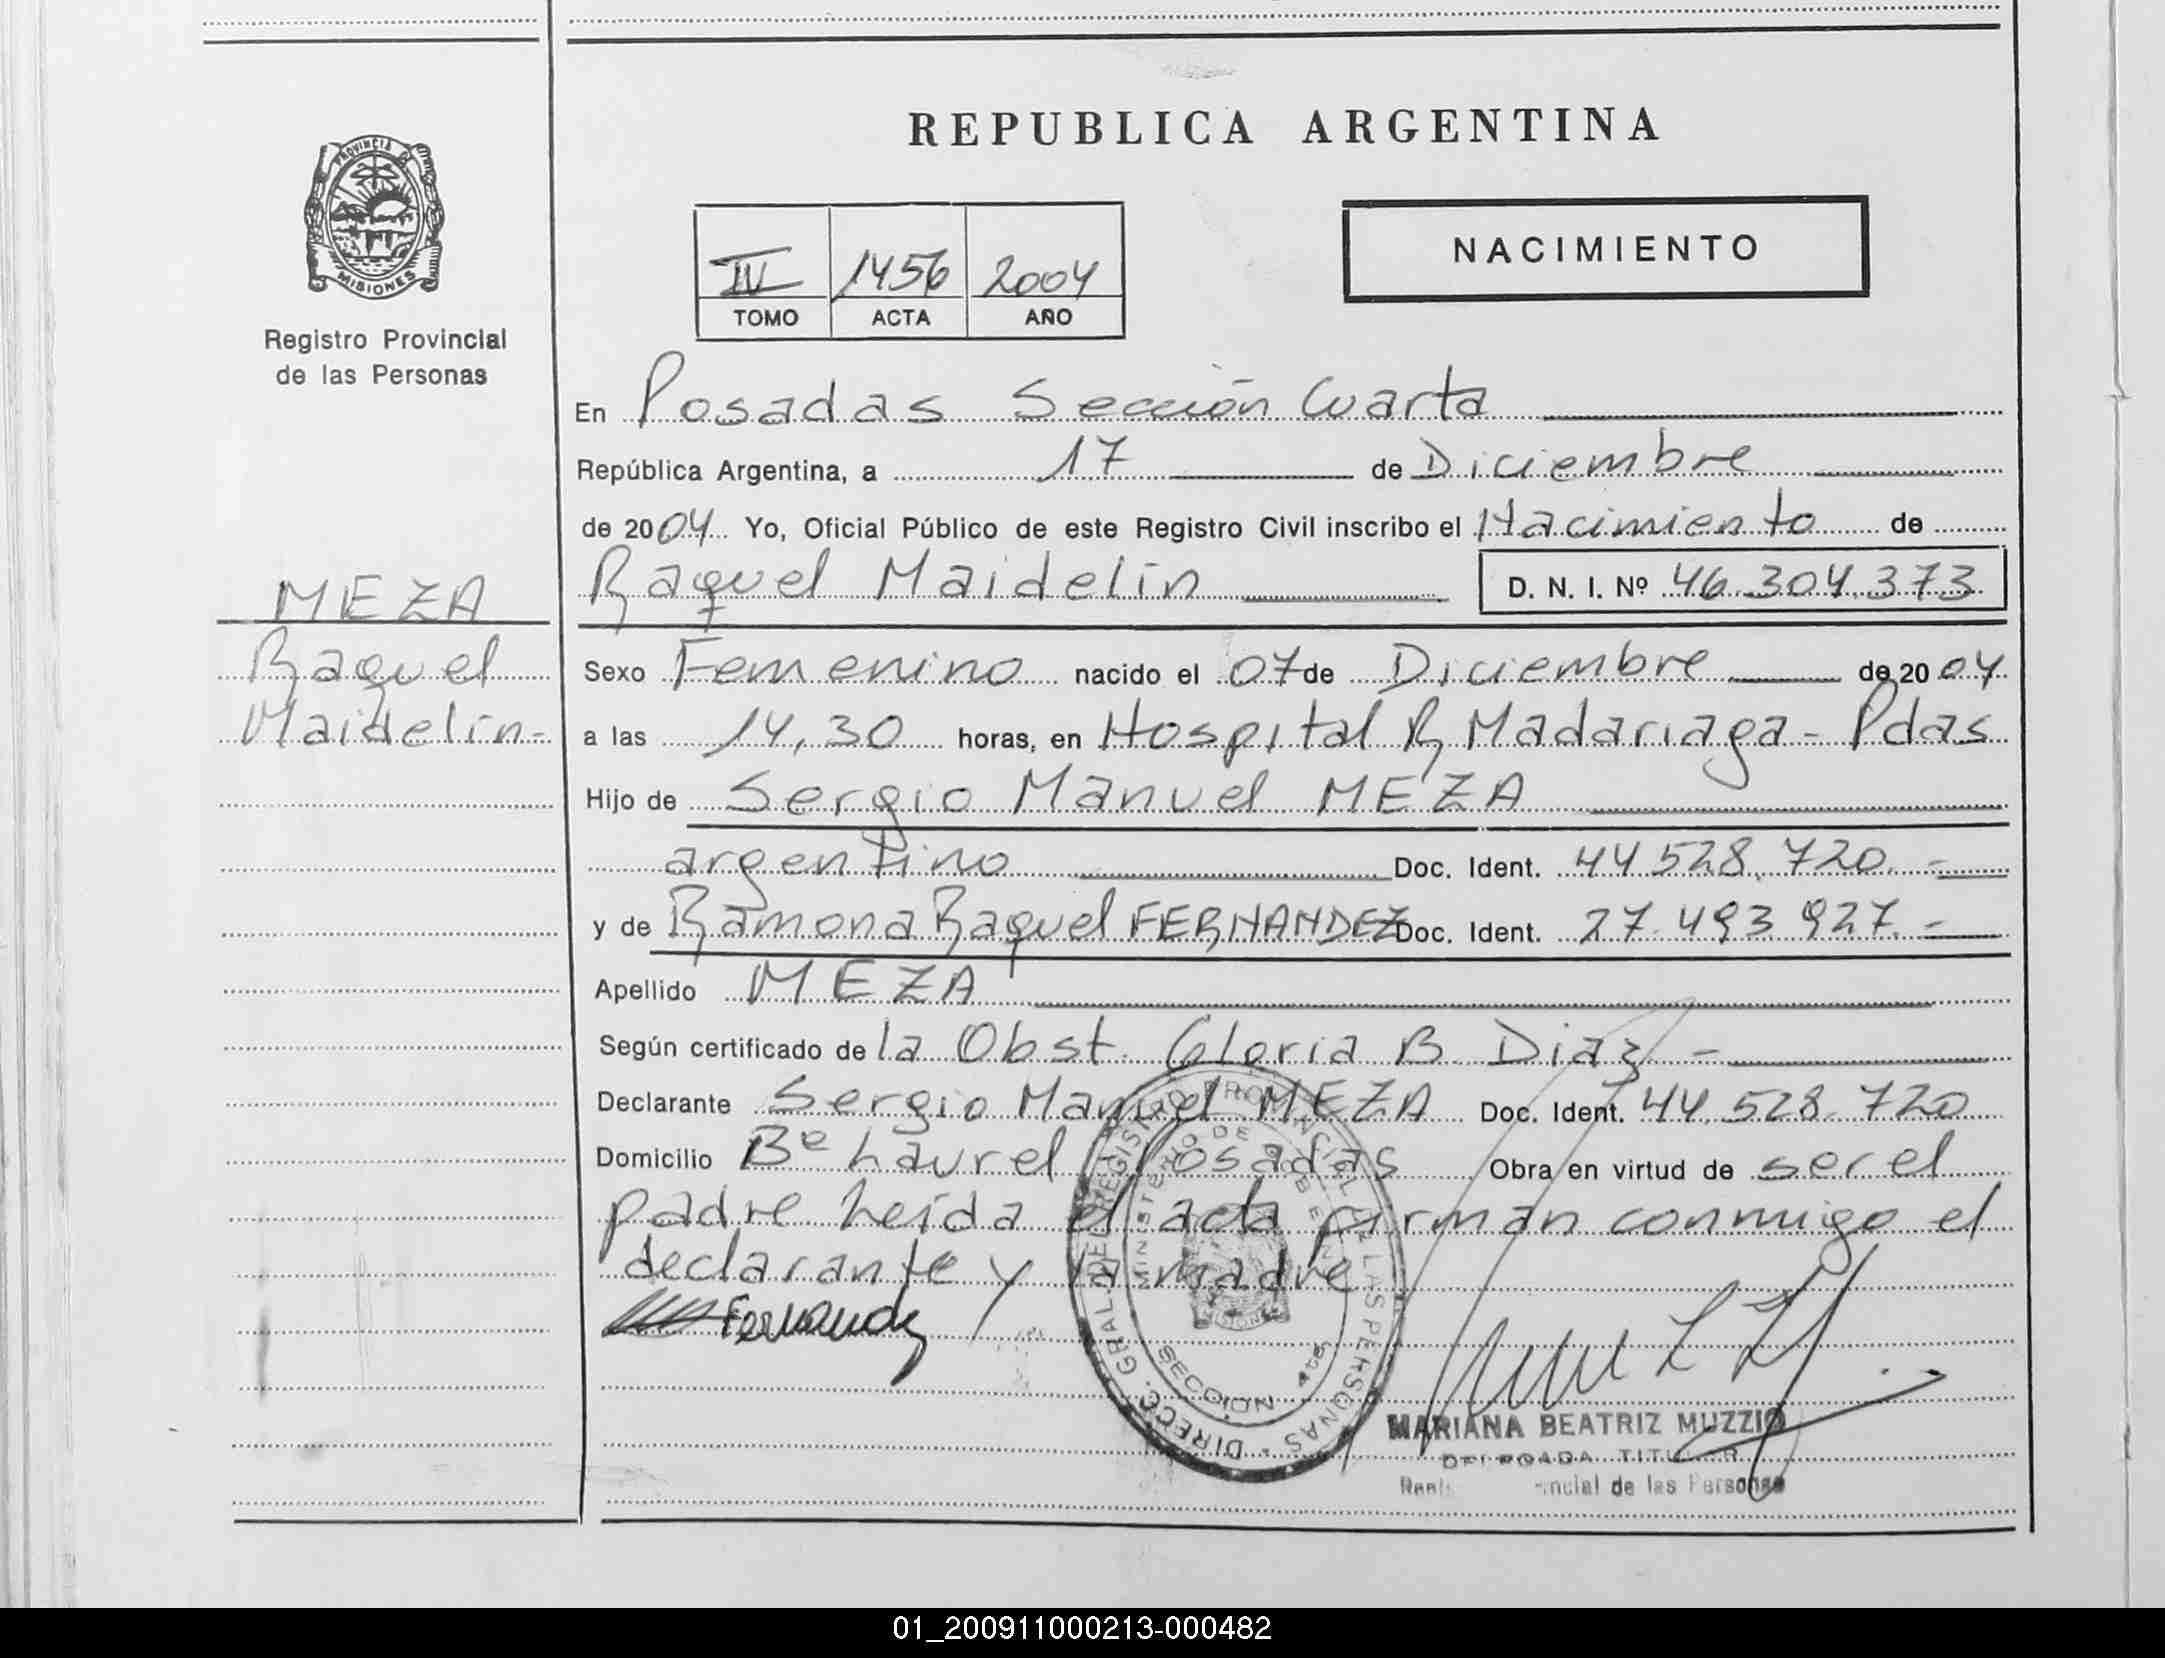 REPUBLICA ARGENTINA
PROVINCIA D
MISIONES
Registro Provincial
de las Personas
IV 1456 2004
TOMO ACTA AÑO
NACIMIENTO
En Posadas Sección Cuarta
República Argentina, a 17 de Diciembre
de 2004 Yo, Oficial Público de este Registro Civil inscribo el Nacimiento de
Raquel Maidelin D. N. I. Nº 46.304.373
MEZA
Raquel
Maidelin-
Sexo Femenino nacido el 07 de Diciembre de 2004
a las 14,30 horas, en Hospital R Madariaga - Pdas
Hijo de Sergio Manuel MEZA
argentino Doc. Ident. 44.528.720.-
y de Ramona Raquel FERNANDEZ Doc. Ident. 27.493.927.-
Apellido MEZA
Según certificado de la Obst. Gloria B. Diaz -
Declarante Sergio Manuel MEZA Doc. Ident. 44.528.720
Domicilio Bº Laurel - Posadas Obra en virtud de ser el
padre Leida el acta firman conmigo el
declarante y la madre
Fernandez
DIRECC. GRAL. DEL REGISTRO PROVINCIAL DE LAS PERSONAS
MINISTERIO DE GOBIERNO
SECCION 4ta
MARIANA BEATRIZ MUZZIO
de las Personas
01_200911000213-000482